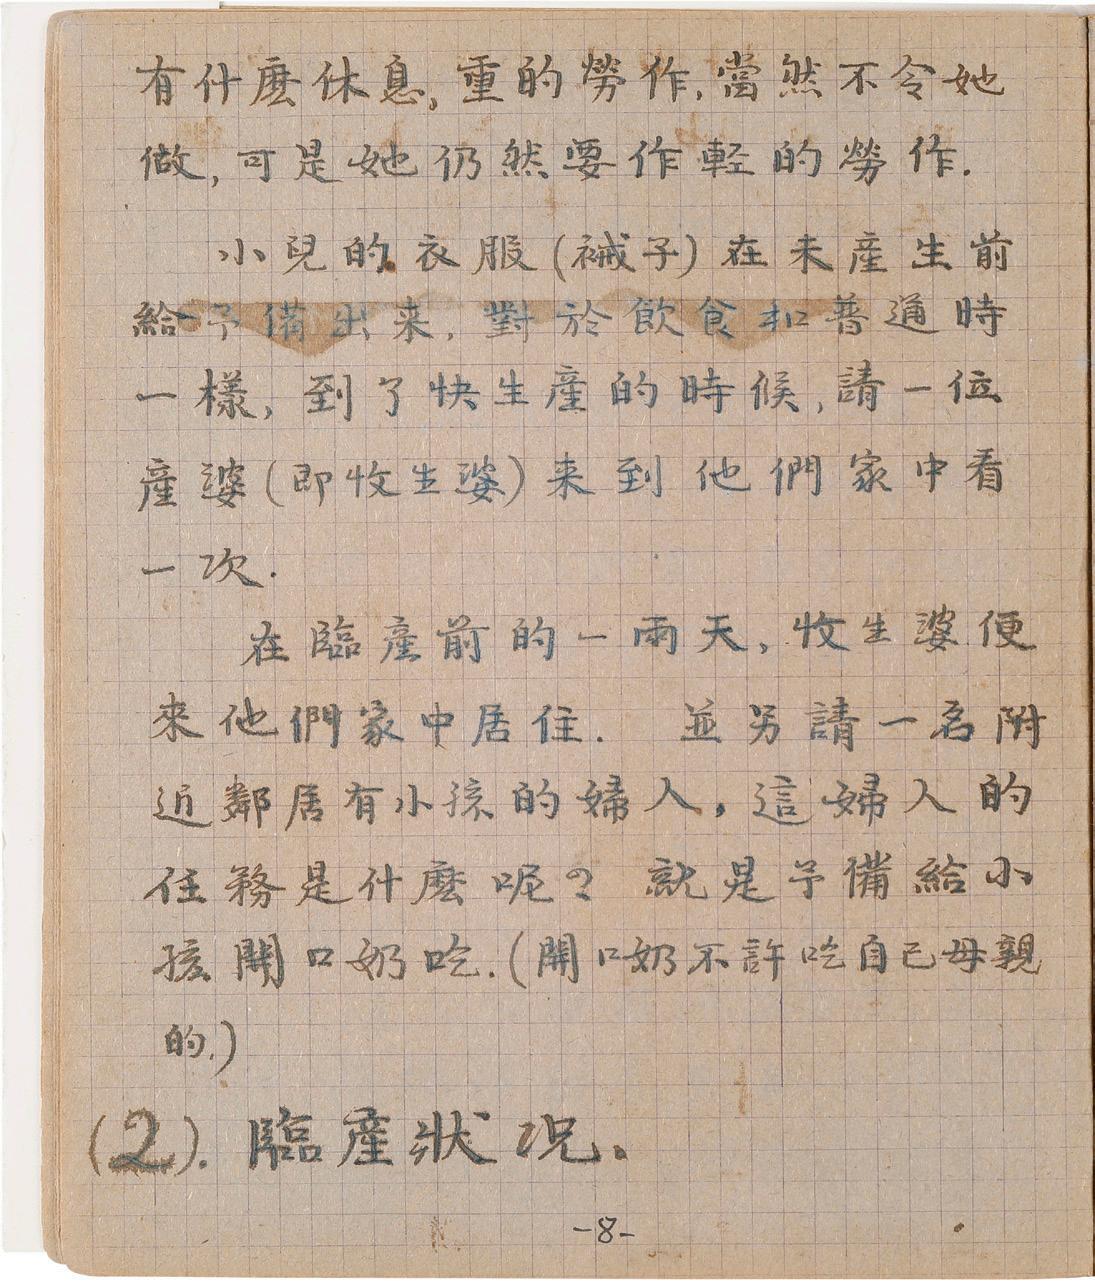 有什麽休息,重的勞作,當然不令她
做,可是她仍然要作輕的勞作.
小兒的衣服(裓子)在未產生前
給予備出来,對於飲食和普通時
一樣,到了快生產的時候,請一位
產婆(即收生婆)来到他們家中看
一次.
在臨產前的一兩天,收生婆便
來他們家中居住. 並另請一名附
近鄰居有小孩的婦人,這婦人的
任務是什麽呢? 就是予備給小
孩開口奶吃.(開口奶不許吃自己母親
的.)
(2).臨產狀况.
-8-